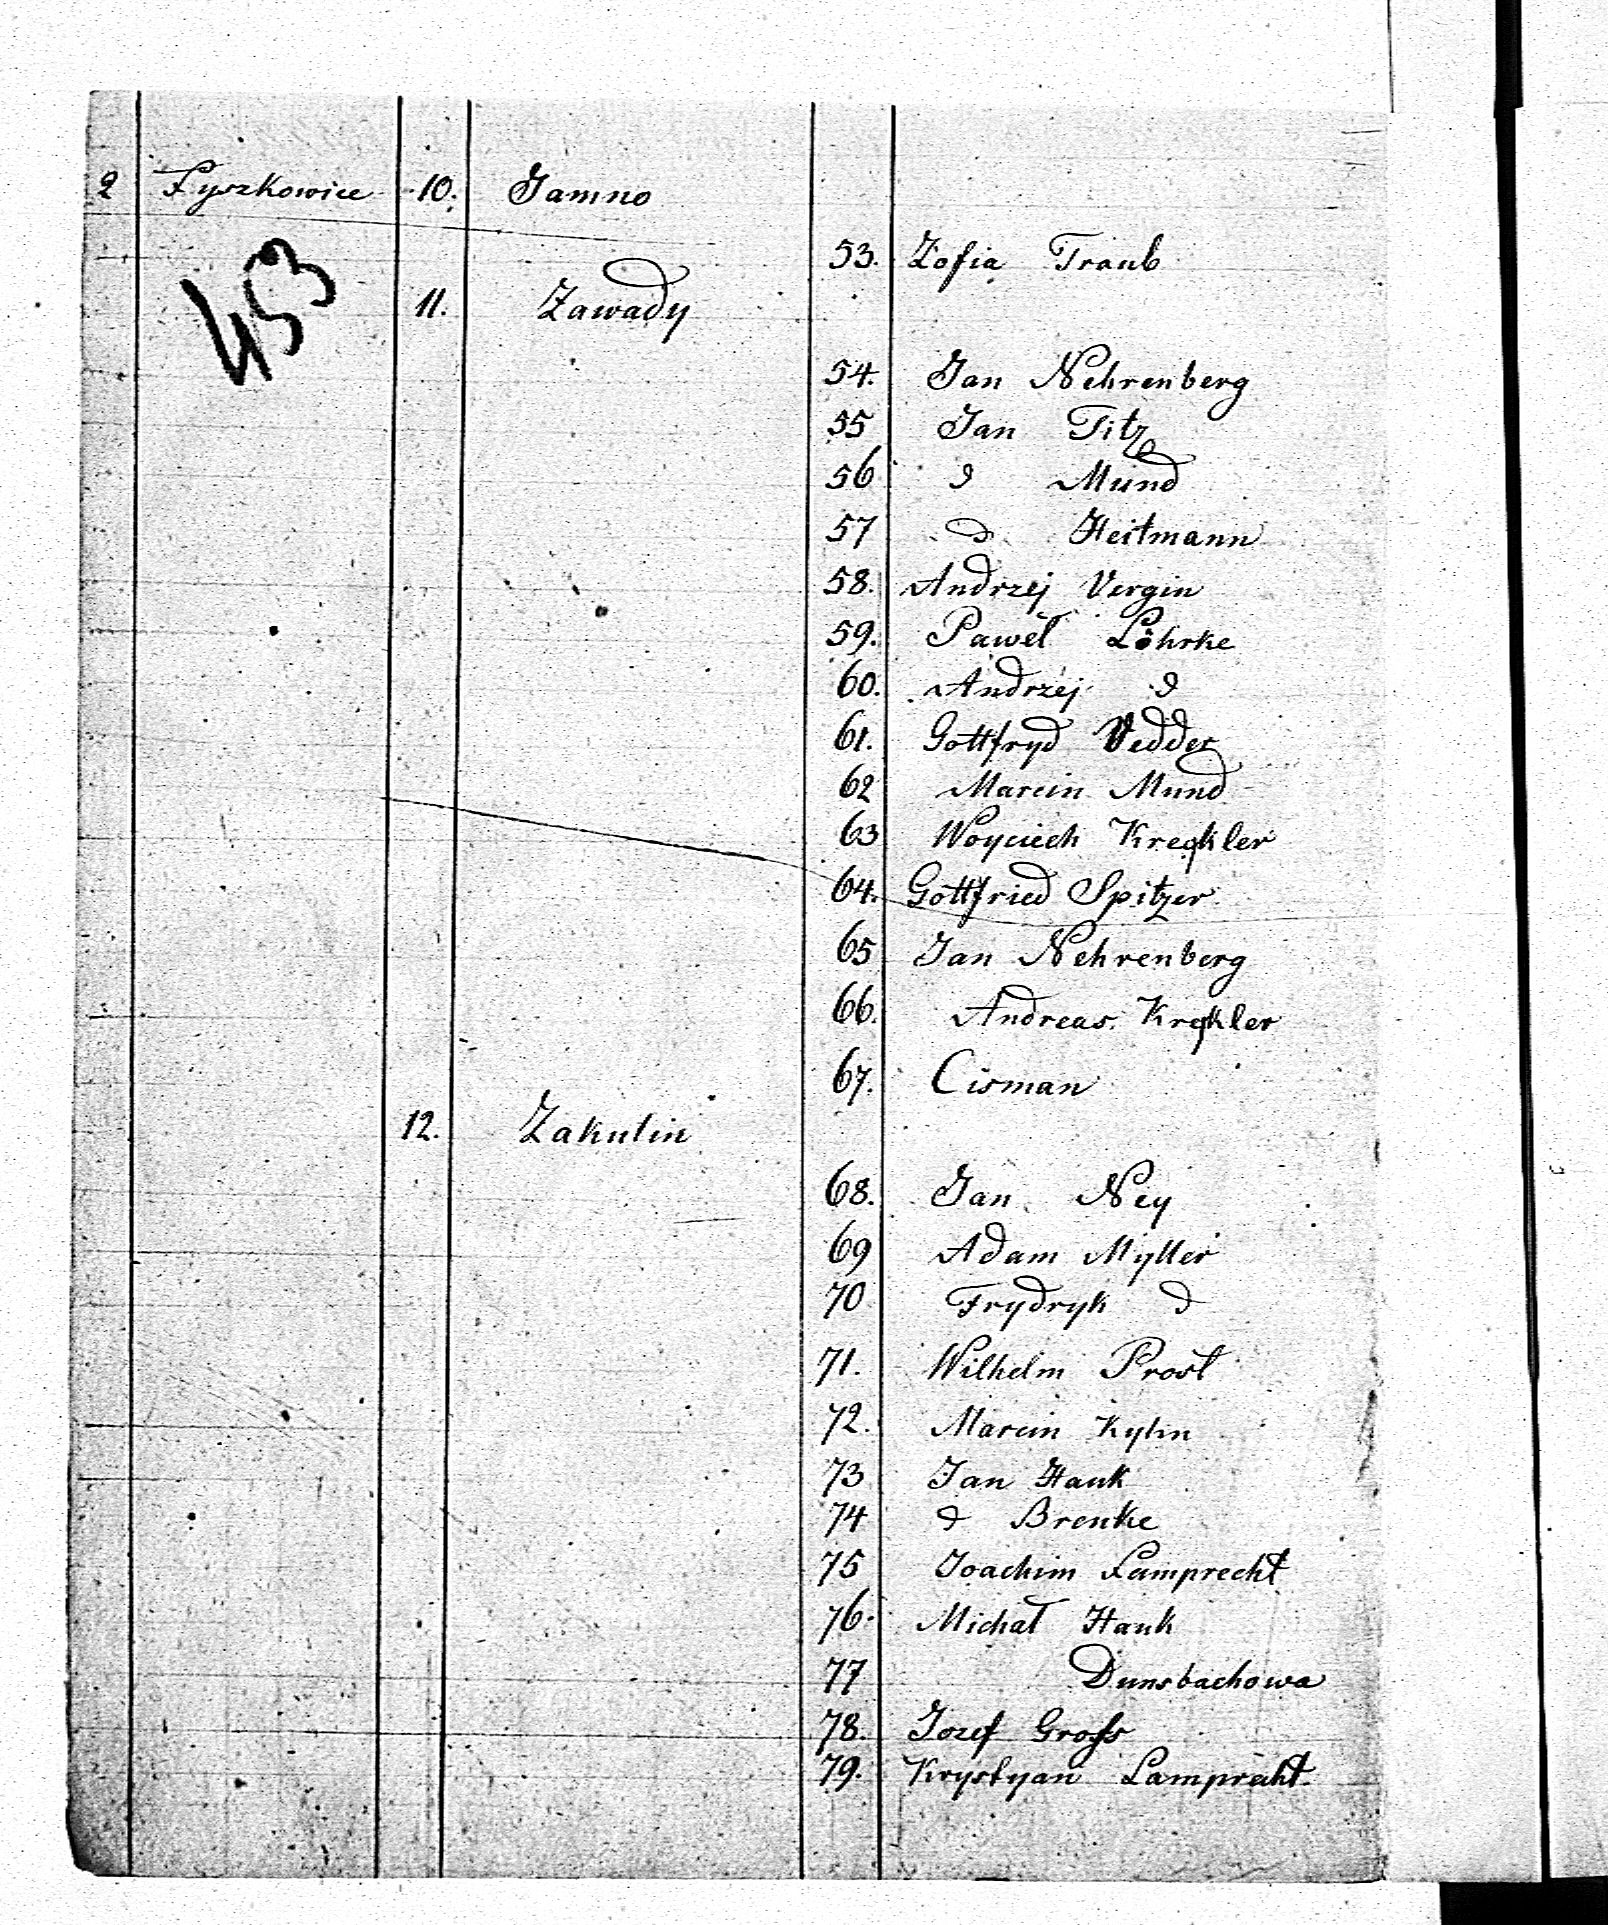 2 Łyszkowice 10. Jamno
53. Zofia Traub
453
11. Zawady
54. Jan Nehrenberg
55 Jan Titz
56 d Mund
57 d Heitmann
58. Andrzej Vergin
59. Paweł Löhrke
60. Andrzej d
61. Gottfryd Vedder
62 Marcin Mund
63 Woyciech Kreqkler
64. Gottfried Spitzer
65 Jan Nehrenberg
66. Andreas Kreqkler
67. Cisman
12. Zakulin
68. Jan Ney
69 Adam Myller
70 Frydryk d
71. Wilhelm Prost
72. Marcin Kylin
73 Jan Hauk
74 d Brenke
75 Joachim Lamprecht
76. Michał Hauk
77 Dunsbachowa
78. Jozef Gross
79. Krystyan Lamprecht